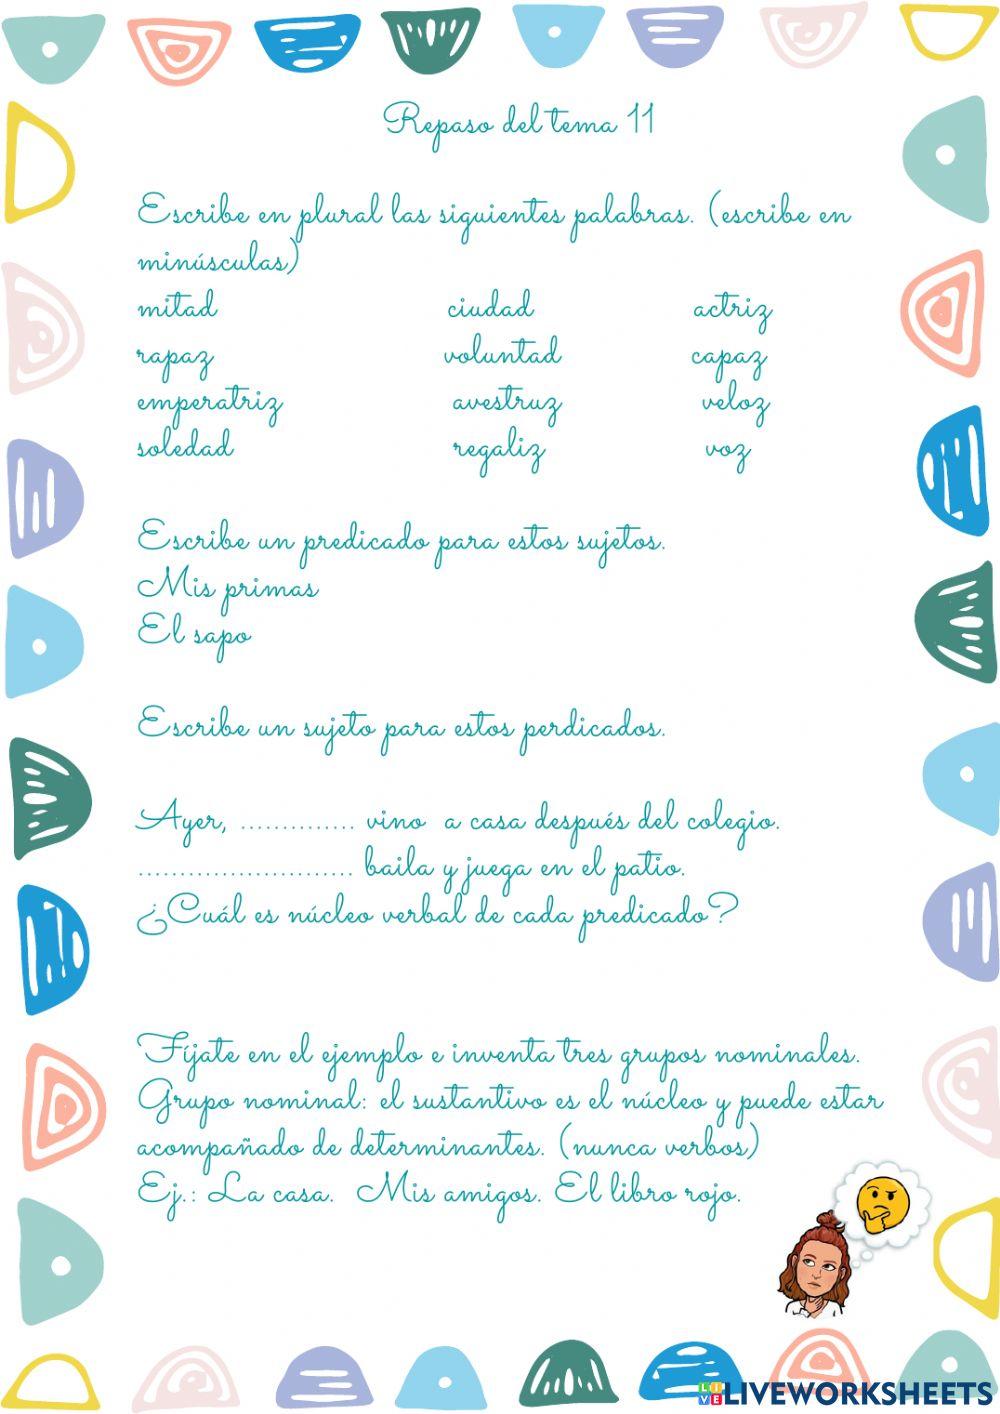 Repaso del tema 11
Escribe en plural las siguientes palabras. (escribe en
minúsculas)
mitad ciudad actriz
rapaz voluntad capaz
emperatriz avestruz veloz
soledad regaliz voz
Escribe un predicado para estos sujetos.
Mis primas
El sapo
Escribe un sujeto para estos perdicados.
Ayer, .............. vino a casa después del colegio.
.......................... baila y juega en el patio.
¿Cuál es núcleo verbal de cada predicado?
Fíjate en el ejemplo e inventa tres grupos nominales.
Grupo nominal: el sustantivo es el núcleo y puede estar
acompañado de determinantes. (nunca verbos)
Ej.: La casa. Mis amigos. El libro rojo.
LIVE LIVEWORKSHEETS